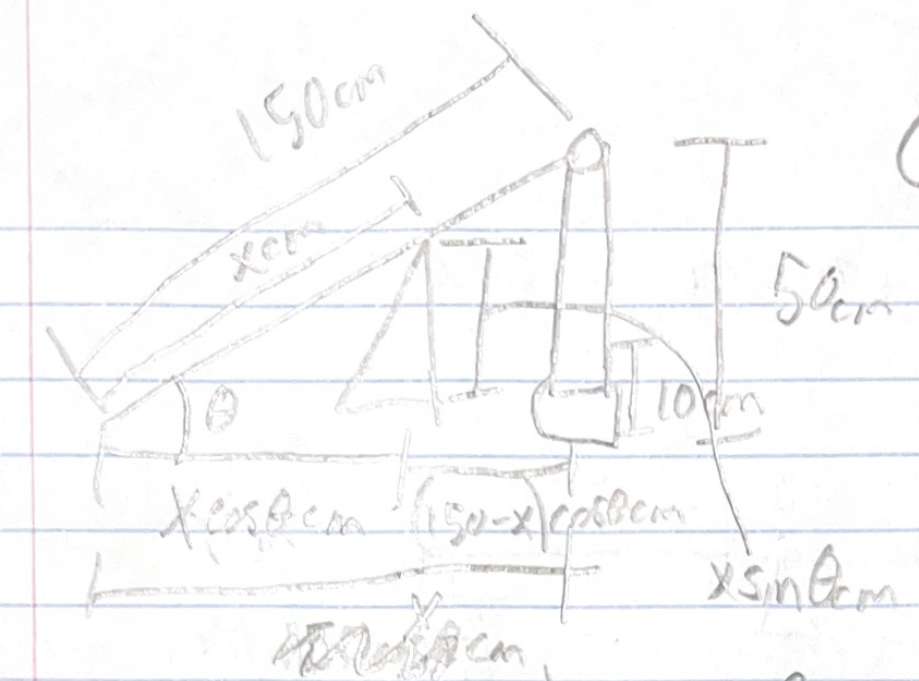 150cm
xcm
50cm
θ
10cm
xcosθcm
(150-x)cosθcm
xsinθcm
cm